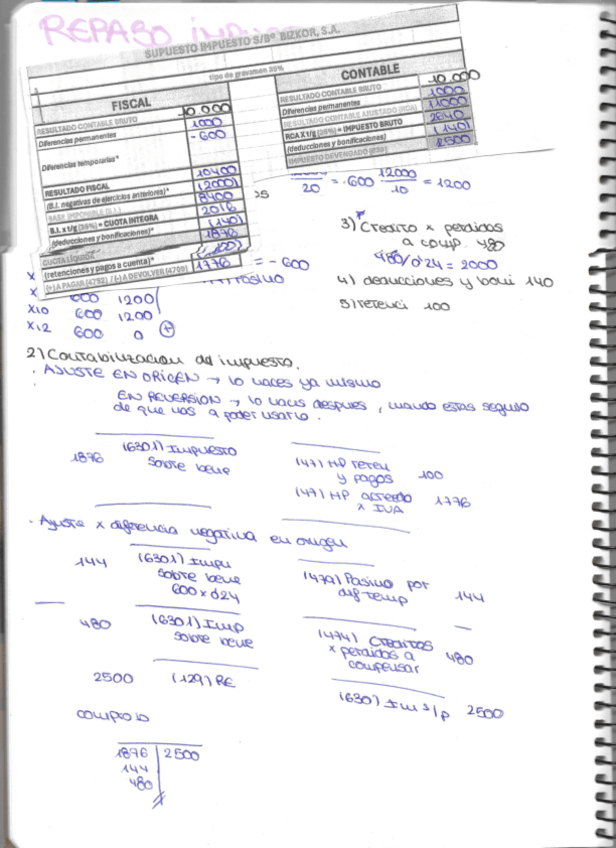 REPASO
SUPUESTO IMPUESTO S/Bº BIZKOR, S.A.
tipo de gravamen 35%
FISCAL
10 000
RESULTADO CONTABLE BRUTO 1000
Diferencias permanentes - 600
Diferencias temporarias*
10400
RESULTADO FISCAL (2000)
(B.I. negativas de ejercicios anteriores)* 8400
BASE IMPONIBLE (B.I.) 2016
B.I. x t/g (35%) = CUOTA INTEGRA (140)
(deducciones y bonificaciones)* 1876
CUOTA LÍQUIDA (100)
(retenciones y pagos a cuenta)* 1776
(+) A PAGAR (4752) / (-) A DEVOLVER (4709)
CONTABLE
10.000
RESULTADO CONTABLE BRUTO 1000
Diferencias permanentes 11000
RESULTADO CONTABLE AJUSTADO (RCA) 2640
RCA X t/g (35%) = IMPUESTO BRUTO (140)
(deducciones y bonificaciones) 2500
IMPUESTO DEVENGADO (630)
20 = -600 12000/10 = 1200
3) Credito x perdidas
a comp. 480
480/0'24 = 2000
= - 600
4) deducciones y boni 140
5) retenci 100
600 1200
X10 600 1200
X12 600 0 (+)
2) Contabilizacion del impuesto.
. AJUSTE EN ORIGEN → lo haces ya mismo
EN REVERSION → lo haces despues, cuando estas seguro
de que vas a poder usarlo.
1876 (6301) Impuesto
sobre bene
(47) HP reten
y pagos 100
(47) HP acreedo 1776
x IVA
. Ajuste x diferencia negativa en origen
144 (6301) Impu
sobre bene
600 x 0'24
(479) Pasivo por
dif temp 144
480 (6301) Imp
sobre bene
(474) Creditos
x perdidas a 480
compensar
2500 (129) RE
(630) Im s/p 2500
comprobo
1876 | 2500
144
480